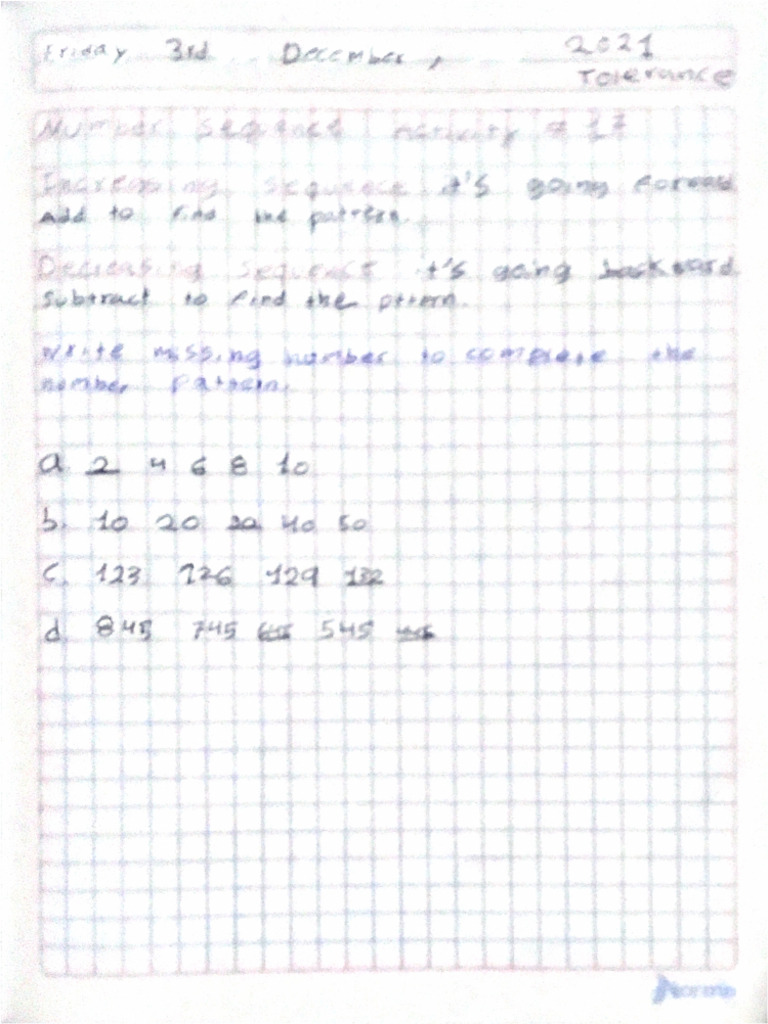 Friday 3rd December, 2021
Tolerance
Number Sequence Activity # 17
Increasing Sequence it's going forward
Add to find the pattern.
Decreasing Sequence it's going backward
Subtract to find the pttern.
Write missing number to complete the
number pattern.
a. 2 4 6 8 10
b. 10 20 30 40 50
c. 123 126 129 132
d. 845 745 645 545 445
Norma